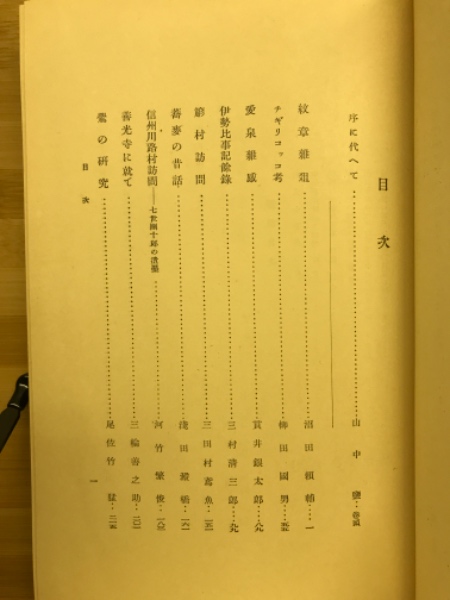 目次
序に代へて……山中 …巻頭
紋章雑爼……沼田頼輔…一
チギリコッコ考……柳田國男…
愛泉雑感……貫井銀太郎…
伊勢比事記餘錄……三村淸三郎…
節村訪問……三田村鳶魚…一五一
蕎麥の昔話……淺田 …一六一
信州川路村訪問——七世團十郎の遺墨……河竹繁俊…一八三
善光寺に就て……三輪善之助…二〇一
鱉の研究……尾佐竹猛…二一五
目次
一